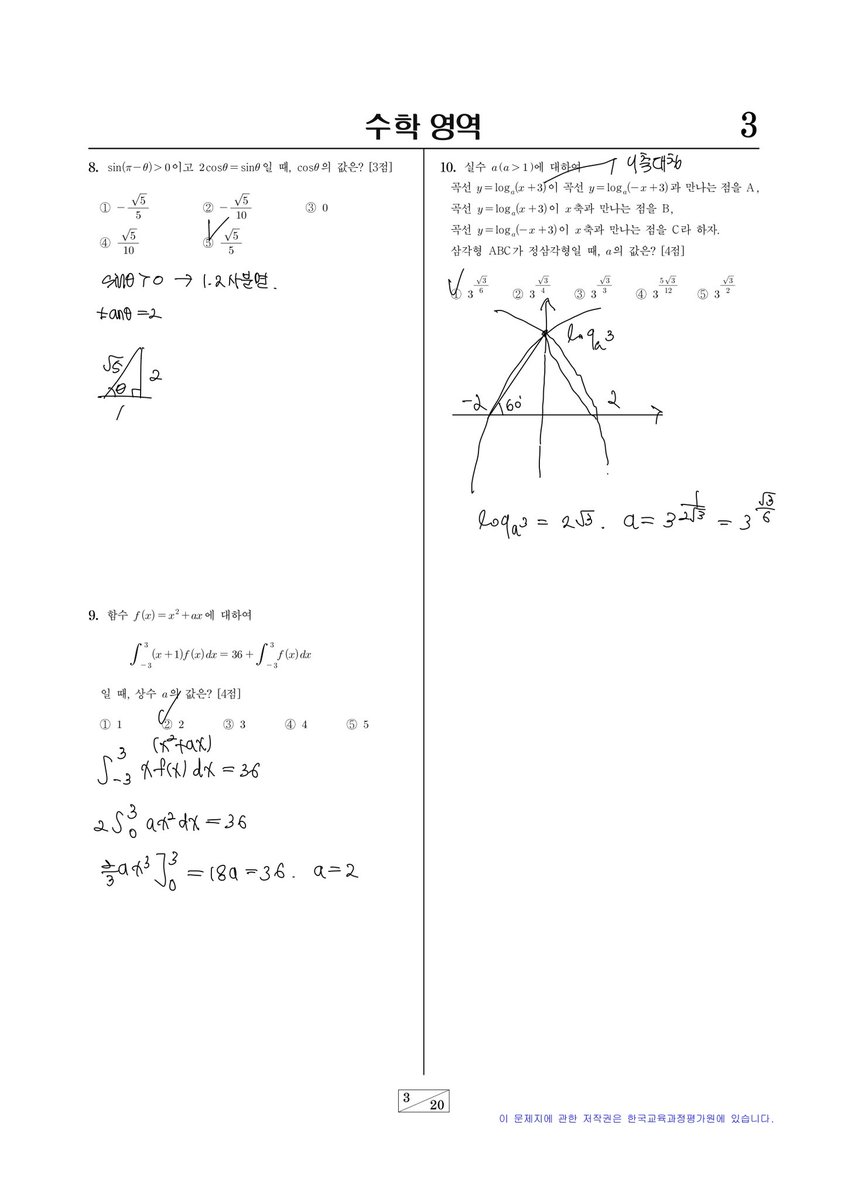 수학 영역
3
8. sin(π−θ)>0이고 2cosθ=sinθ일 때, cosθ의 값은? [3점]
① −√5/5 ② −√5/10 ③ 0
④ √5/10 ⑤ √5/5
sinθ>0 → 1.2사분면.
tanθ=2
√5
θ
2
1
9. 함수 f(x)=x²+ax에 대하여
∫₋₃³(x+1)f(x)dx=36+∫₋₃³f(x)dx
일 때, 상수 a의 값은? [4점]
① 1 ② 2 ③ 3 ④ 4 ⑤ 5
(x²+ax)
∫₋₃³ xf(x)dx=36
2∫₀³ ax²dx=36
2/3ax³]₀³=18a=36. a=2
10. 실수 a(a>1)에 대하여
y축대칭
곡선 y=logₐ(x+3)이 곡선 y=logₐ(−x+3)과 만나는 점을 A,
곡선 y=logₐ(x+3)이 x축과 만나는 점을 B,
곡선 y=logₐ(−x+3)이 x축과 만나는 점을 C라 하자.
삼각형 ABC가 정삼각형일 때, a의 값은? [4점]
① 3^(√3/6) ② 3^(√3/4) ③ 3^(√3/3) ④ 3^(5√3/12) ⑤ 3^(√3/2)
logₐ3
−2
60°
2
logₐ3=2√3. a=3^(1/(2√3))=3^(√3/6)
3
20
이 문제지에 관한 저작권은 한국교육과정평가원에 있습니다.